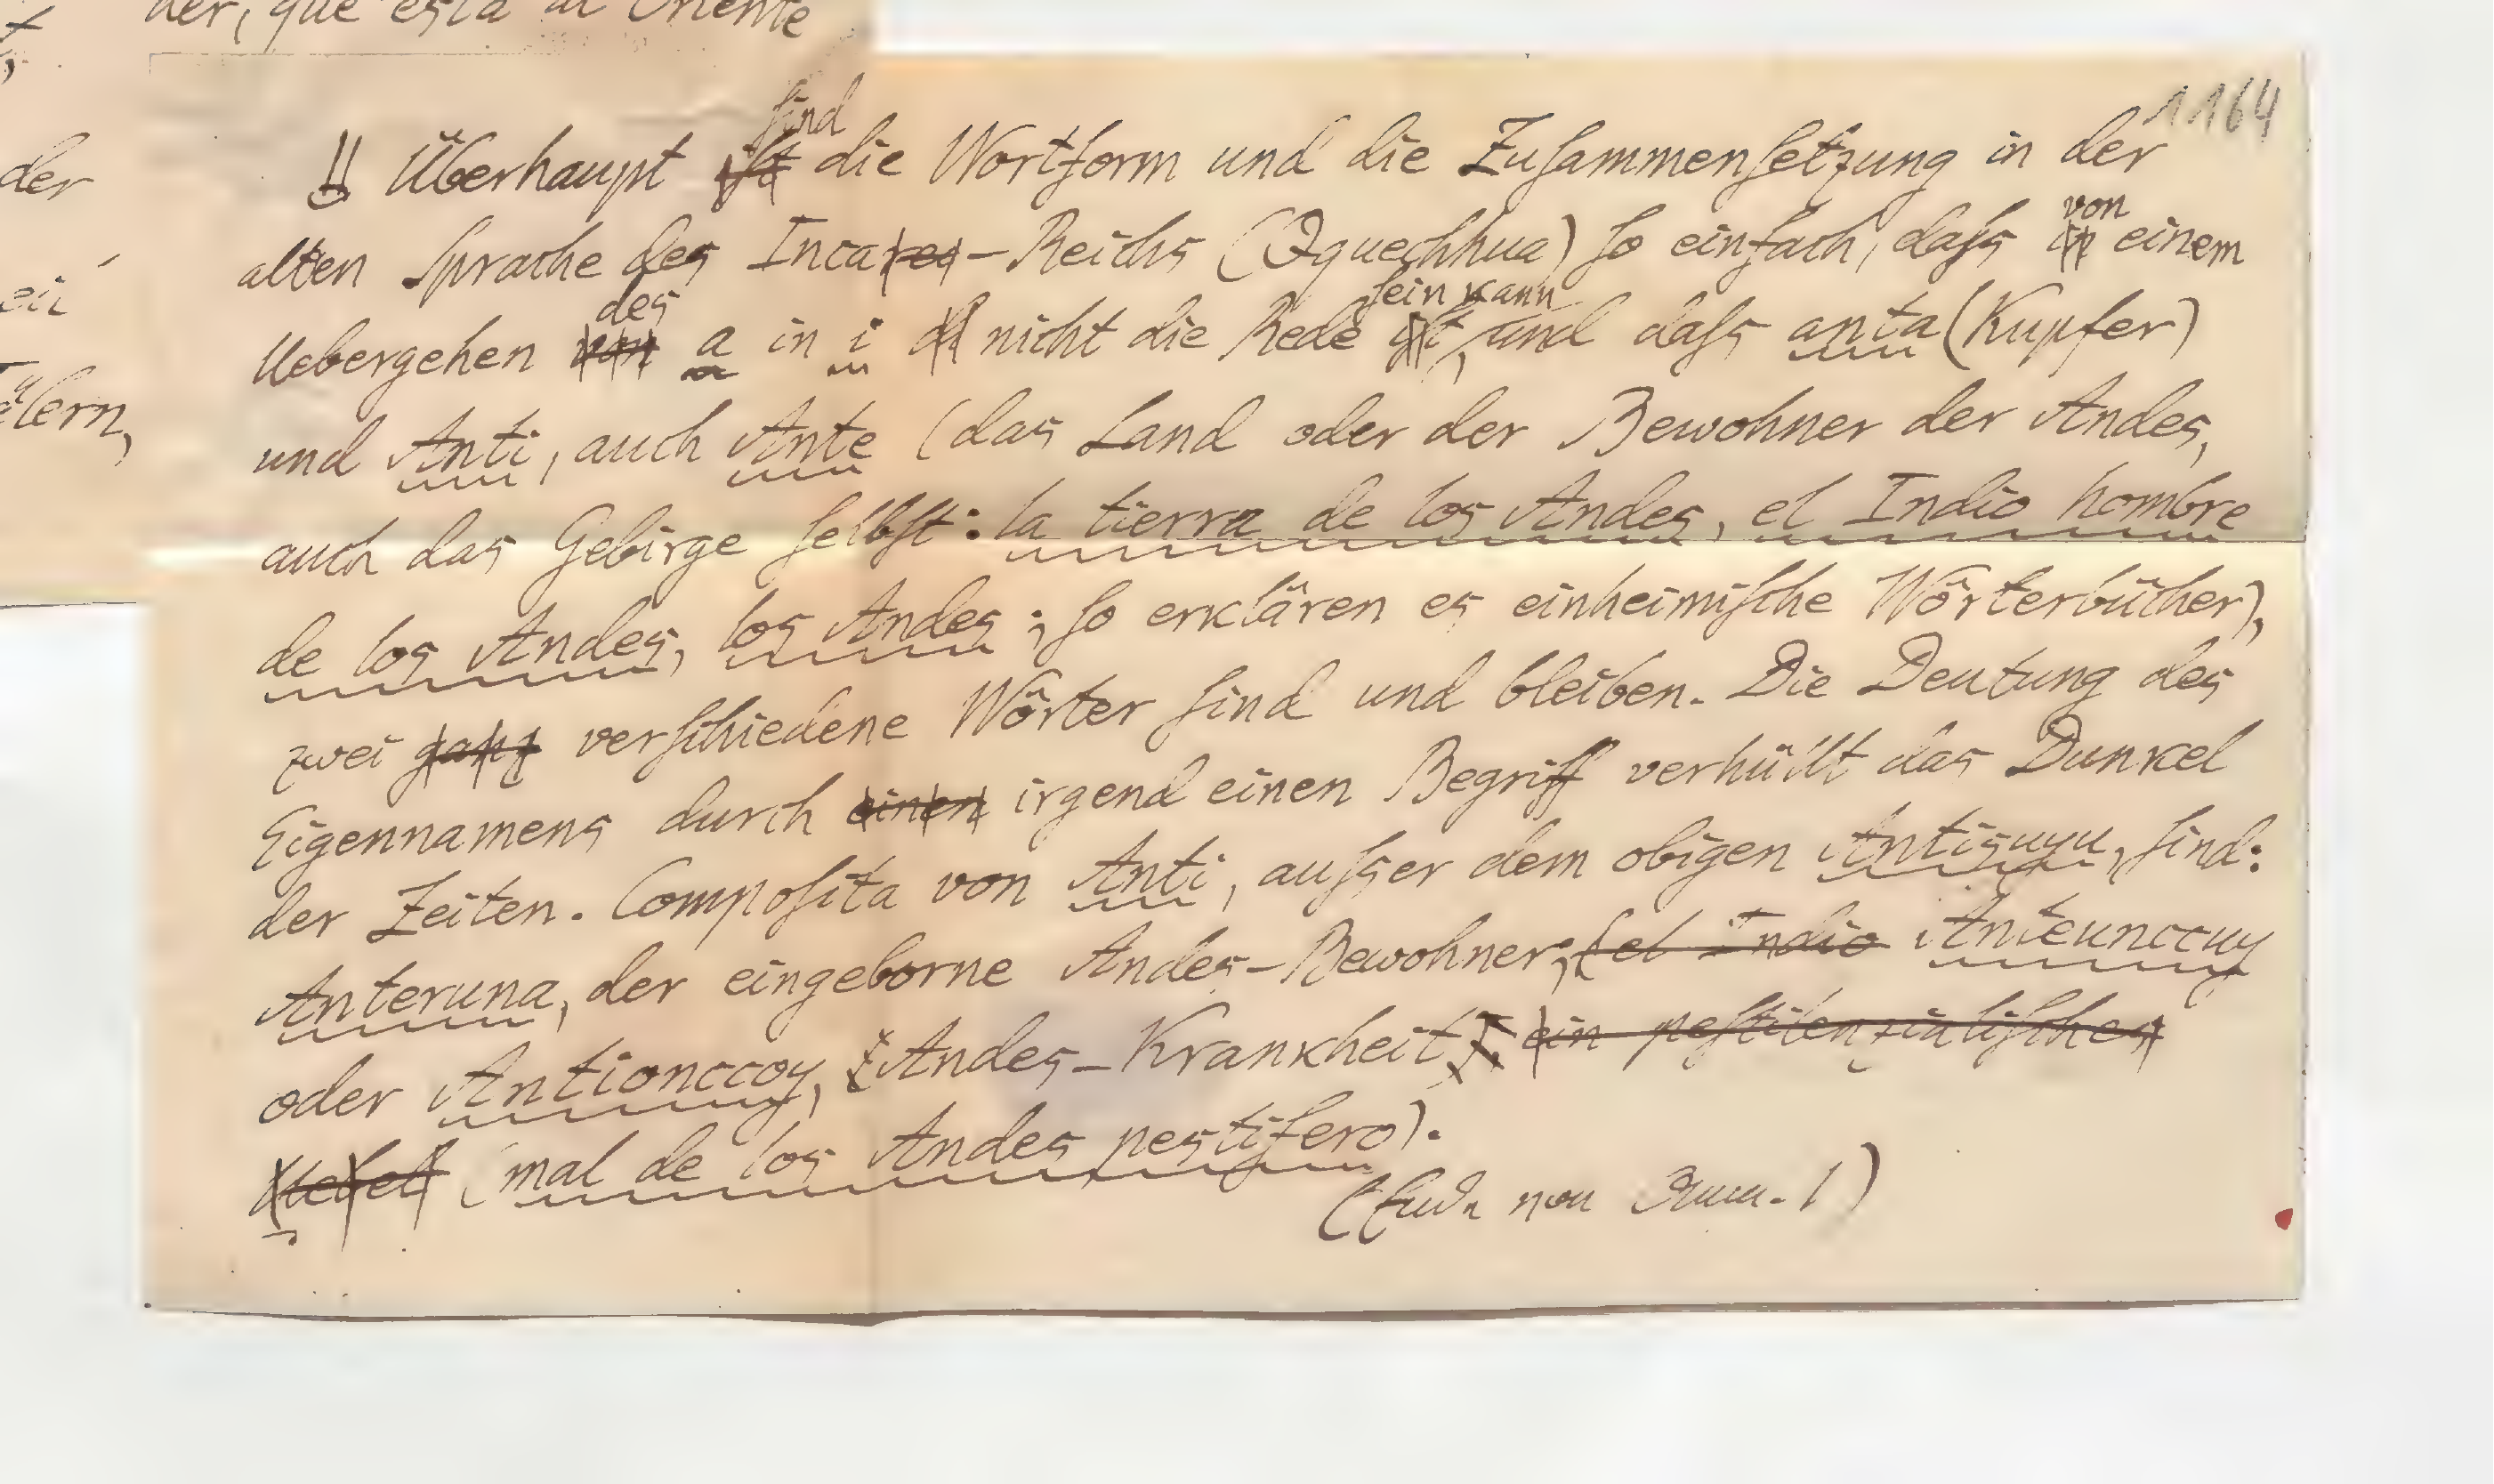 der, que está al Oriente
der
ei
älern,
1164
Überhaupt ist sind die Wortform und die Zusammensetzung in der
alten Sprache des Inca-Reichs (Qquechhua) so einfach, dass in von einem
Uebergehen von des a in i nicht die Rede ist, sein kann und dass anta (Kupfer)
und Anti, auch Ante (das Land oder der Bewohner der Andes,
auch das Gebirge selbst: la tierra de los Andes, el Indio hombre
de los Andes, los Andes; so erklären es einheimische Wörterbücher),
zwei ganz verschiedene Wörter sind und bleiben. Die Deutung des
Eigennamens durch einen irgend einen Begriff verhüllt das Dunkel
der Zeiten. Composita von Anti, ausser dem obigen Antisuyu, sind:
Anteruna, der eingeborne Andes-Bewohner; (el Indio Anteunccuy
oder Antionccoy, (Andes-Krankheit), ein pestilenzialisches
Uebel (mal de los Andes pestifero).
(Ende von Anm. 1)